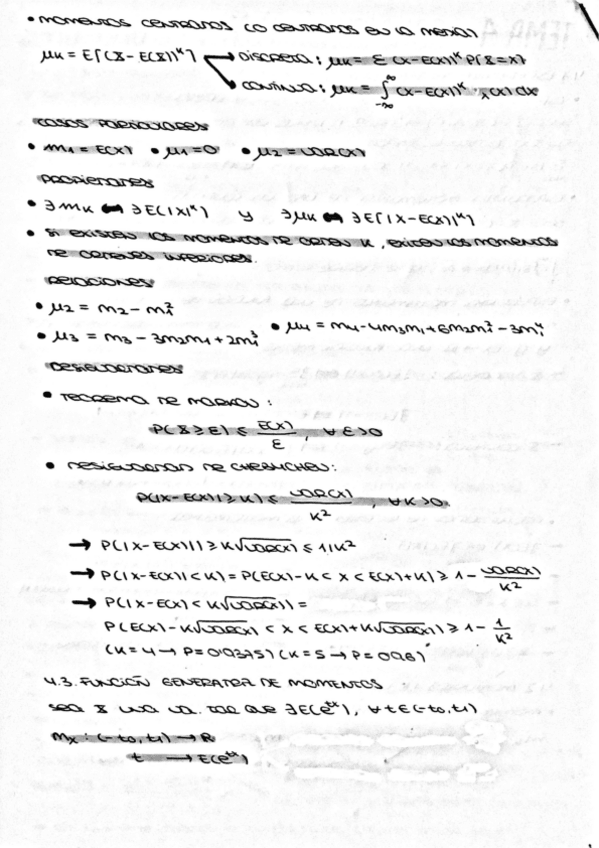 • MOMENTOS CENTRADOS (O CENTRADOS EN LA MEDIA)
μk = E[(X - E(X))^k] → DISCRETA: μk = Σ (x-E(X))^k P[X=x]
→ CONTINUA: μk = ∫_{-∞}^{∞} (x-E(X))^k · f_x(x) dx
CASOS PARTICULARES
• m1 = E(X) • μ1 = 0 • μ2 = VAR(X)
PROPIEDADES
• ∃ mk ↔ ∃ E(|X|^k) y ∃ μk ↔ ∃ E[|X-E(X)|^k]
• SI EXISTEN LOS MOMENTOS DE ORDEN K, EXISTEN LOS MOMENTOS
DE ORDENES INFERIORES.
RELACIONES
• μ2 = m2 - m1²
• μ3 = m3 - 3m2m1 + 2m1³ • μ4 = m4 - 4m3m1 + 6m2m1² - 3m1⁴
DESIGUALDADES
• TEOREMA DE MARKOV:
P(X ≥ ε) ≤ E(X)/ε, ∀ ε > 0
• DESIGUALDAD DE CHEBYCHEV:
P(|X-E(X)| ≥ K) ≤ VAR(X)/K², ∀ K > 0
→ P(|X-E(X)|) ≥ K√VAR(X) ≤ 1/K²
→ P(|X-E(X)| < K) = P(E(X)-K < X < E(X)+K) ≥ 1 - VAR(X)/K²
→ P(|X-E(X) < K√VAR(X)) =
P(E(X)-K√VAR(X) < X < E(X)+K√VAR(X)) ≥ 1 - 1/K²
(K=4 → P=0'9375) (K=5 → P=0'96)
4.3. FUNCIÓN GENERATRIZ DE MOMENTOS
SEA X UNA V.A. TAL QUE ∃ E(e^{tX}), ∀ t ∈ (-t0, t1)
Mx : (-t0, t1) → R
t → E(e^{tX})